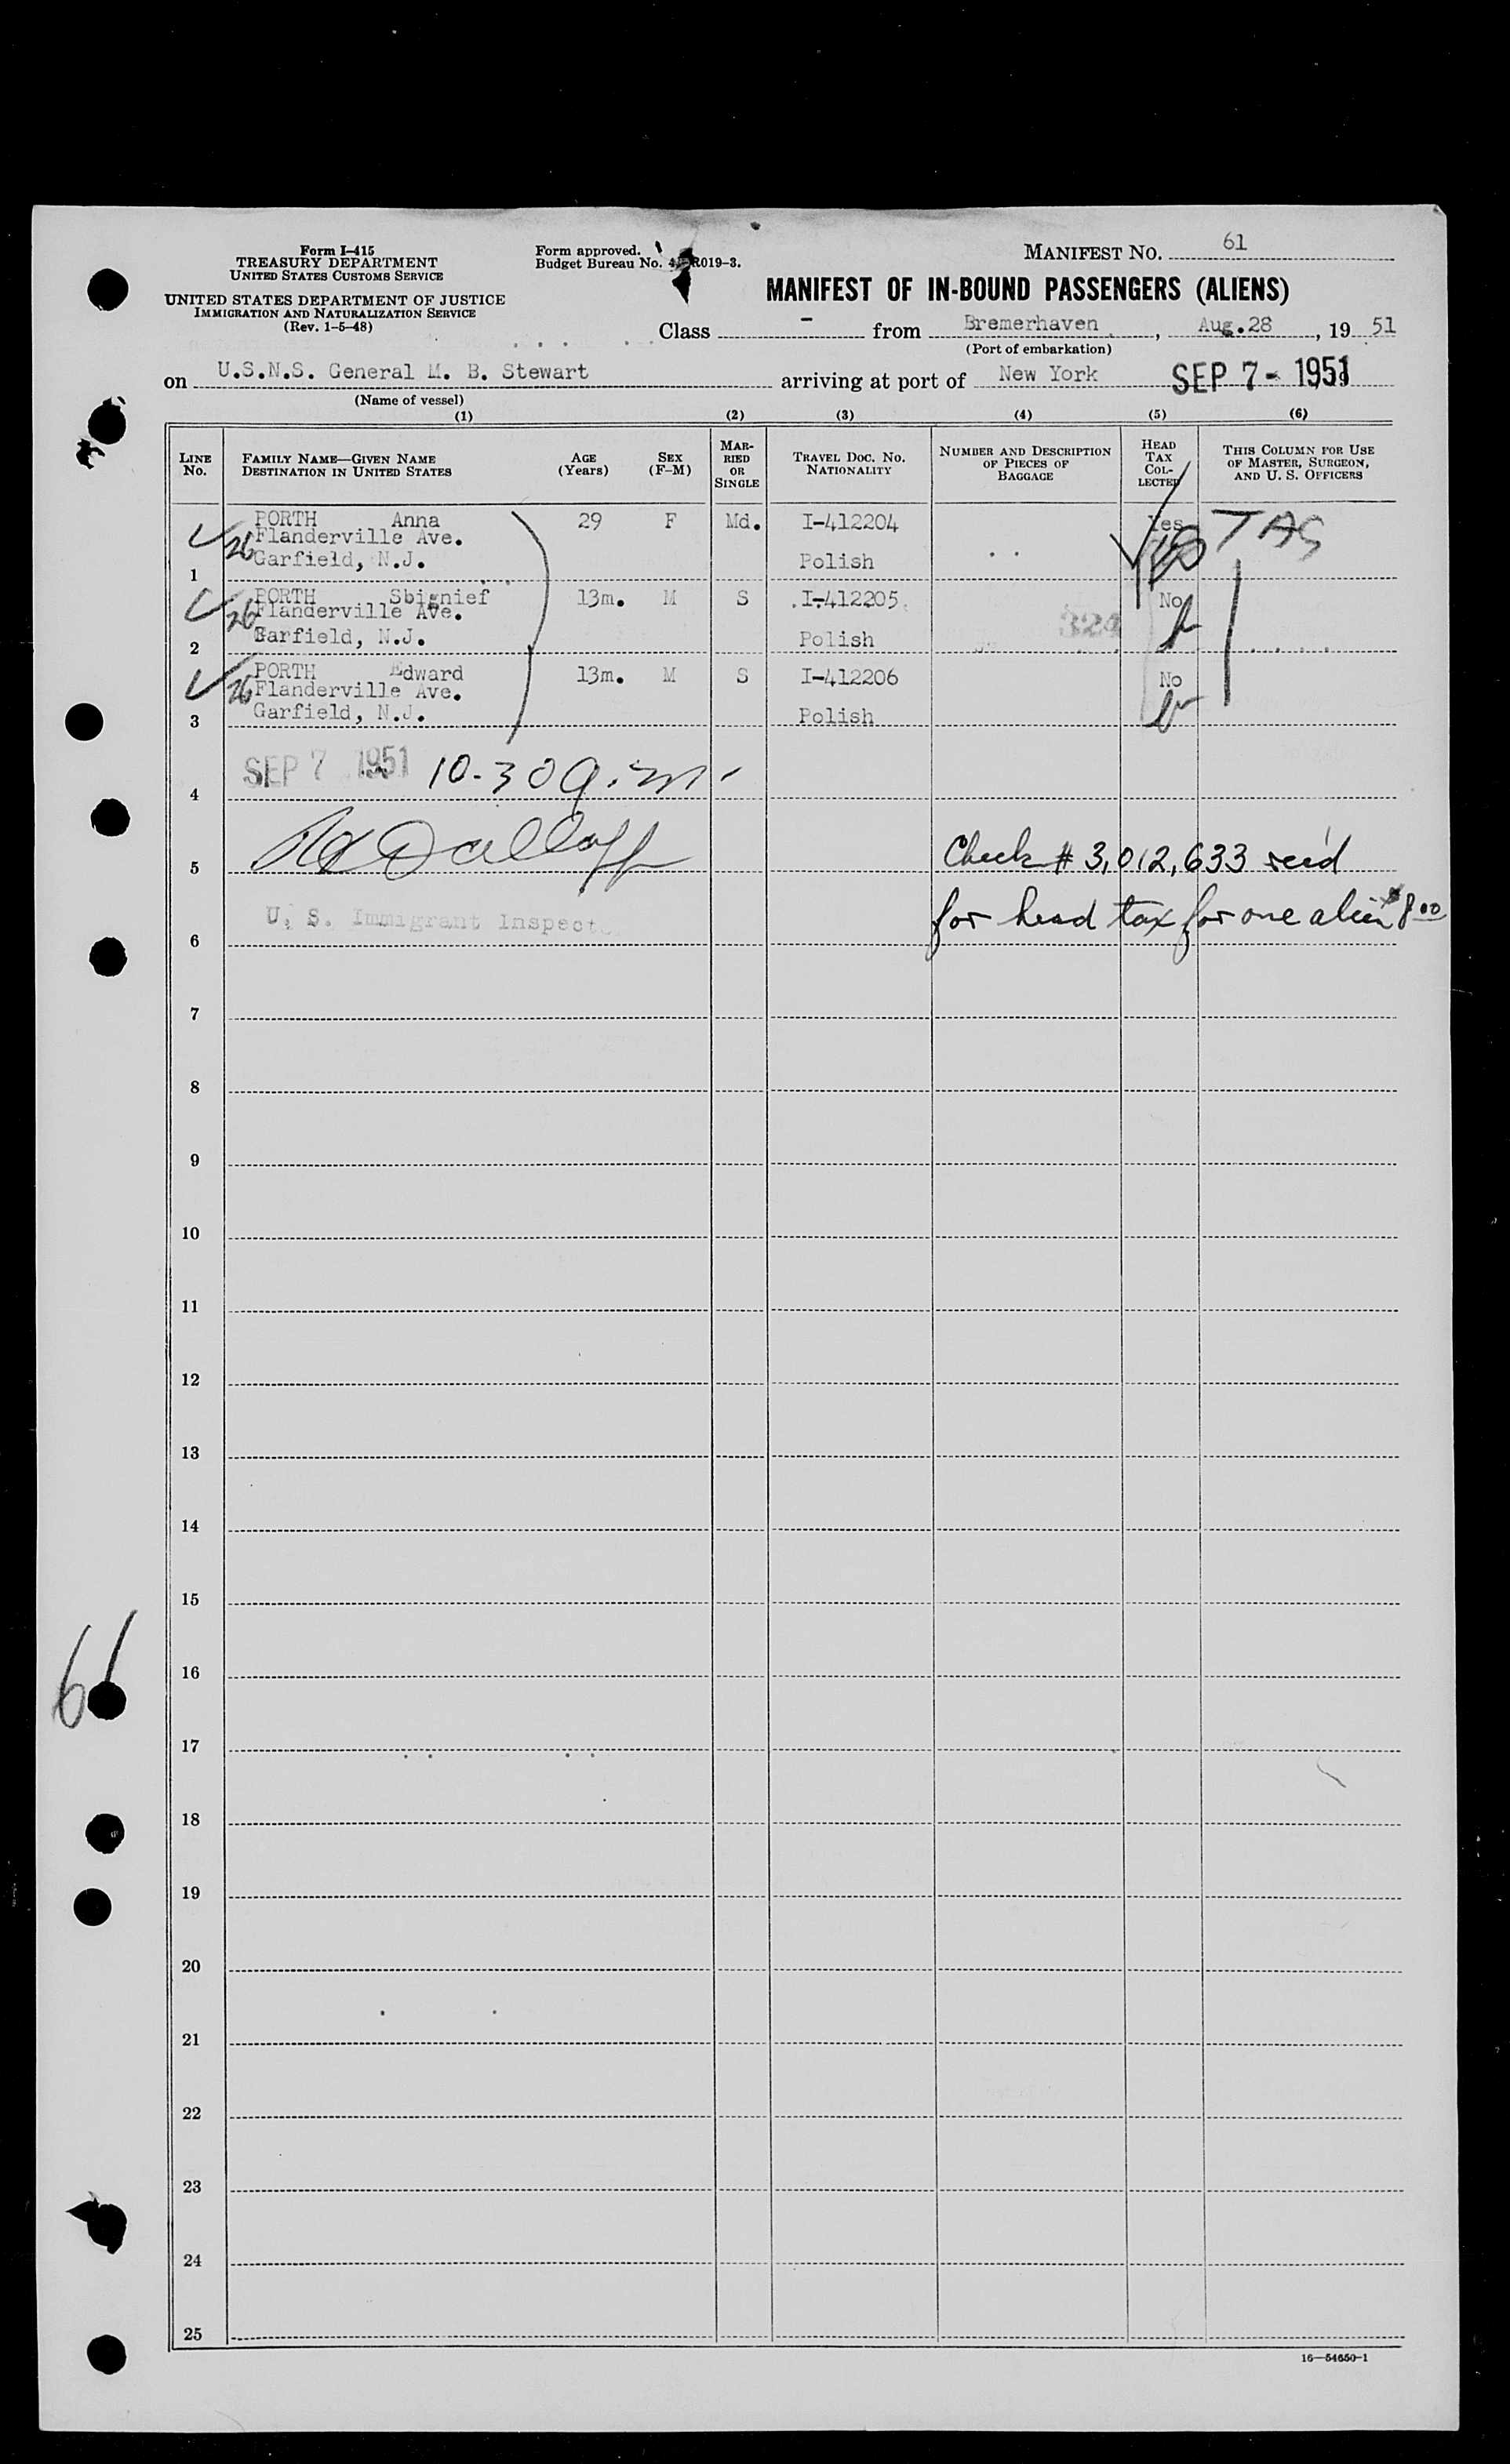 Form I-415
TREASURY DEPARTMENT
UNITED STATES CUSTOMS SERVICE
UNITED STATES DEPARTMENT OF JUSTICE
IMMIGRATION AND NATURALIZATION SERVICE
(Rev. 1-5-48)
Form approved.
Budget Bureau No. R019-3.
MANIFEST NO. 61
MANIFEST OF IN-BOUND PASSENGERS (ALIENS)
Class - from Bremerhaven, Aug. 28, 1951
(Port of embarkation)
on U.S.N.S. General M. B. Stewart arriving at port of New York SEP 7 - 1951
(Name of vessel)
(1) (2) (3) (4) (5) (6)
LINE No. FAMILY NAME—GIVEN NAME DESTINATION IN UNITED STATES AGE (Years) SEX (F-M) MARRIED OR SINGLE TRAVEL DOC. NO. NATIONALITY NUMBER AND DESCRIPTION OF PIECES OF BAGGAGE HEAD TAX COLLECTED THIS COLUMN FOR USE OF MASTER, SURGEON, AND U. S. OFFICERS
PORTH Anna 29 F Md. I-412204 Yes TAS
26 Flanderville Ave.
1 Garfield, N.J. Polish
PORTH Sbignief 13m. M S I-412205 No
26 Flanderville Ave. 324
2 Garfield, N.J. Polish
PORTH Edward 13m. M S I-412206 No
26 Flanderville Ave.
3 Garfield, N.J. Polish
SEP 7 1951 10-30 a.m.
4
5 Check # 3,012,633 rec'd
U. S. Immigrant Inspect
for head tax for one alien $8.00
6
7
8
9
10
11
12
13
14
15
61
16
17
18
19
20
21
22
23
24
25
16—54650-1